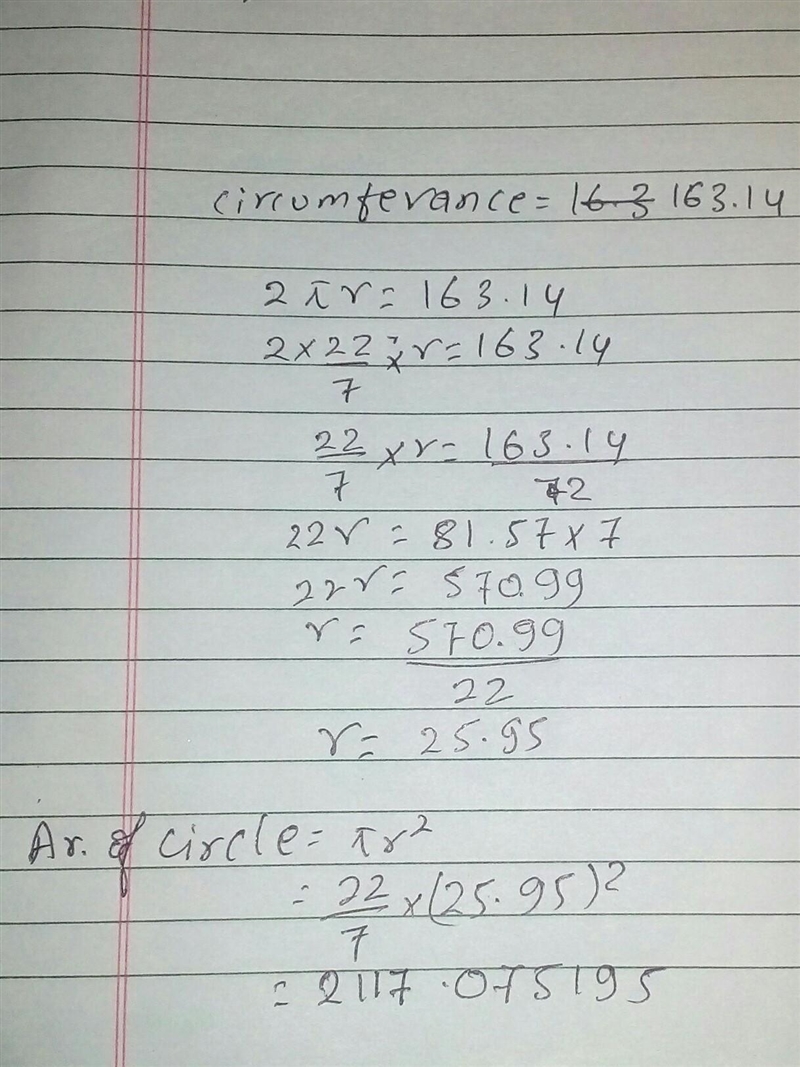 circumferance = 16.3 163.14
2πr = 163.14
2 × 22/7 × r = 163.14
22/7 × r = 163.14/2
22r = 81.57 × 7
22r = 570.99
r = 570.99/22
r = 25.95
Ar. of circle = πr²
= 22/7 × (25.95)²
= 2117.075195